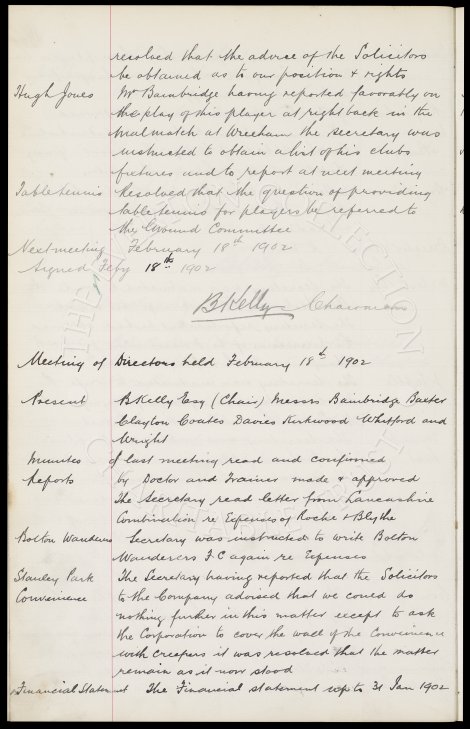 resolved that the advice of the Solicitors
be obtained as to our position & rights
Hugh Jones Mr Bainbridge having reported favorably on
the play of this player at right back in the
trial match at Wrexham the secretary was
instructed to obtain a list of his clubs
fixtures and to report at next meeting
Table tennis Resolved that the question of providing
table tennis for players be referred to
the Ground Committee
Next meeting February 18th 1902
Signed Feby 18th 1902
B Kelly Chairman
Meeting of Directors held February 18th 1902
Present B Kelly Esq (Chair) Messrs Bainbridge Baxter
Clayton Coates Davies Kirkwood Whitford and
Wright
Minutes of last meeting read and confirmed
Reports by Doctor and Trainer made & approved
The Secretary read letter from Lancashire
Combination re Expenses of Roche & Blythe
Bolton Wanderers Secretary was instructed to write Bolton
Wanderers F C again re Expenses
Stanley Park The Secretary having reported that the Solicitors
Convenience to the Company advised that we could do
nothing further in this matter except to ask
the Corporation to cover the wall of the Convenience
with creepers it was resolved that the matter
remain as it now stood
Financial Statement The Financial statement up to 31 Jan 1902